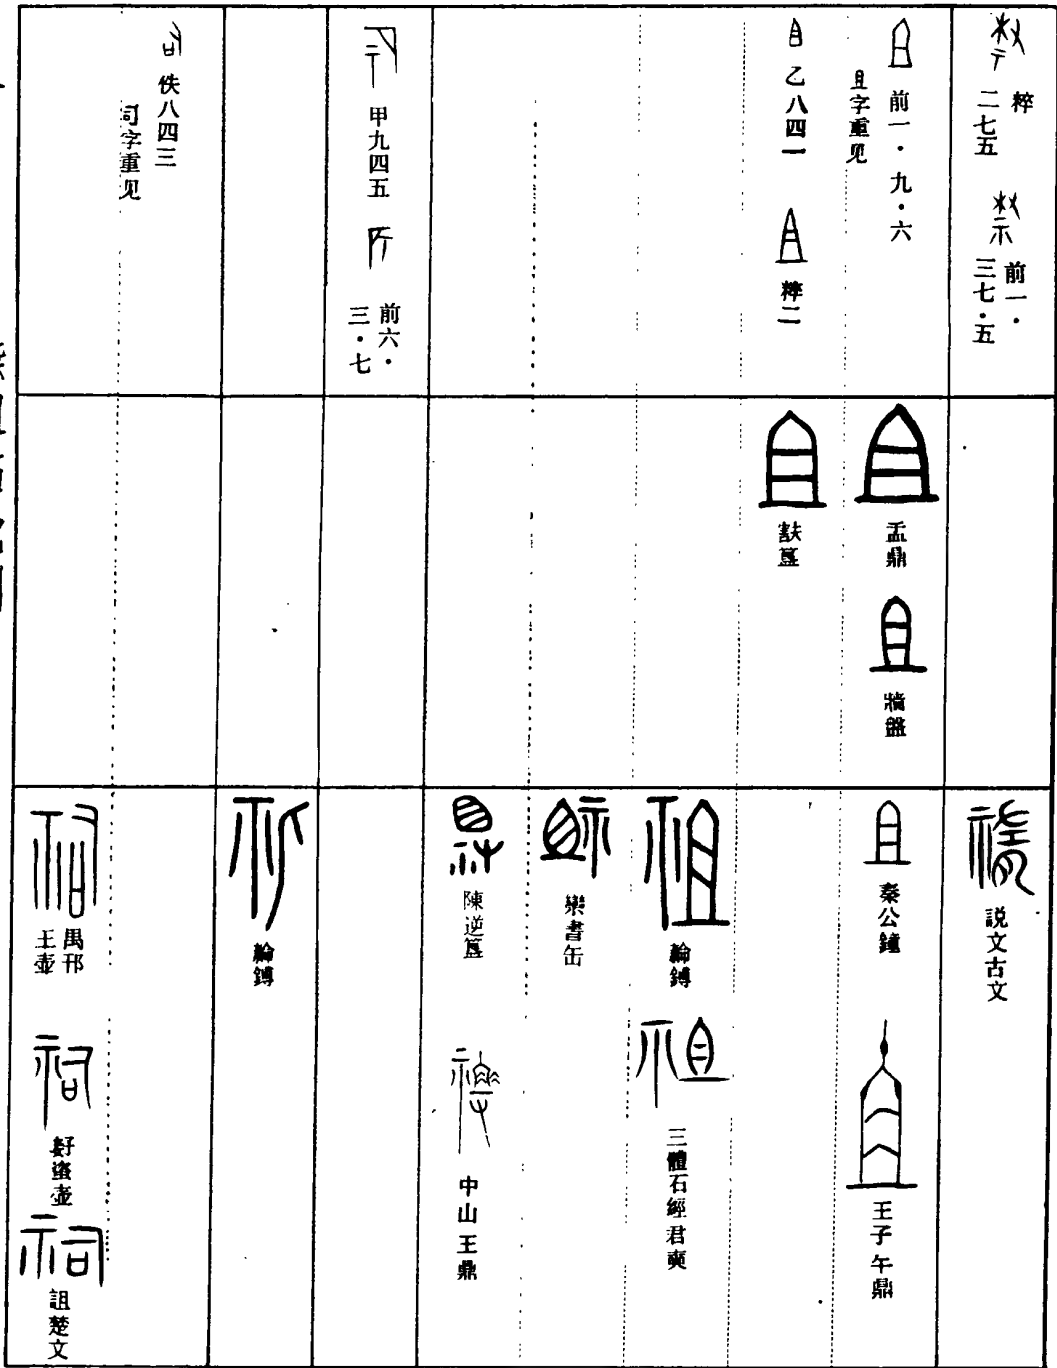 粹二七五
前一·三七·五
前一·九·六
且字重见
乙八四一
粹二
甲九四五
前六·三·七
佚八四三
司字重见
盂鼎
牆盤
㝬簋
説文古文
秦公鐘
王子午鼎
𦅫鎛
三體石經君奭
欒書缶
陳逆簋
中山王鼎
𦅫鎛
禺邗王壺
𧊒壺
詛楚文